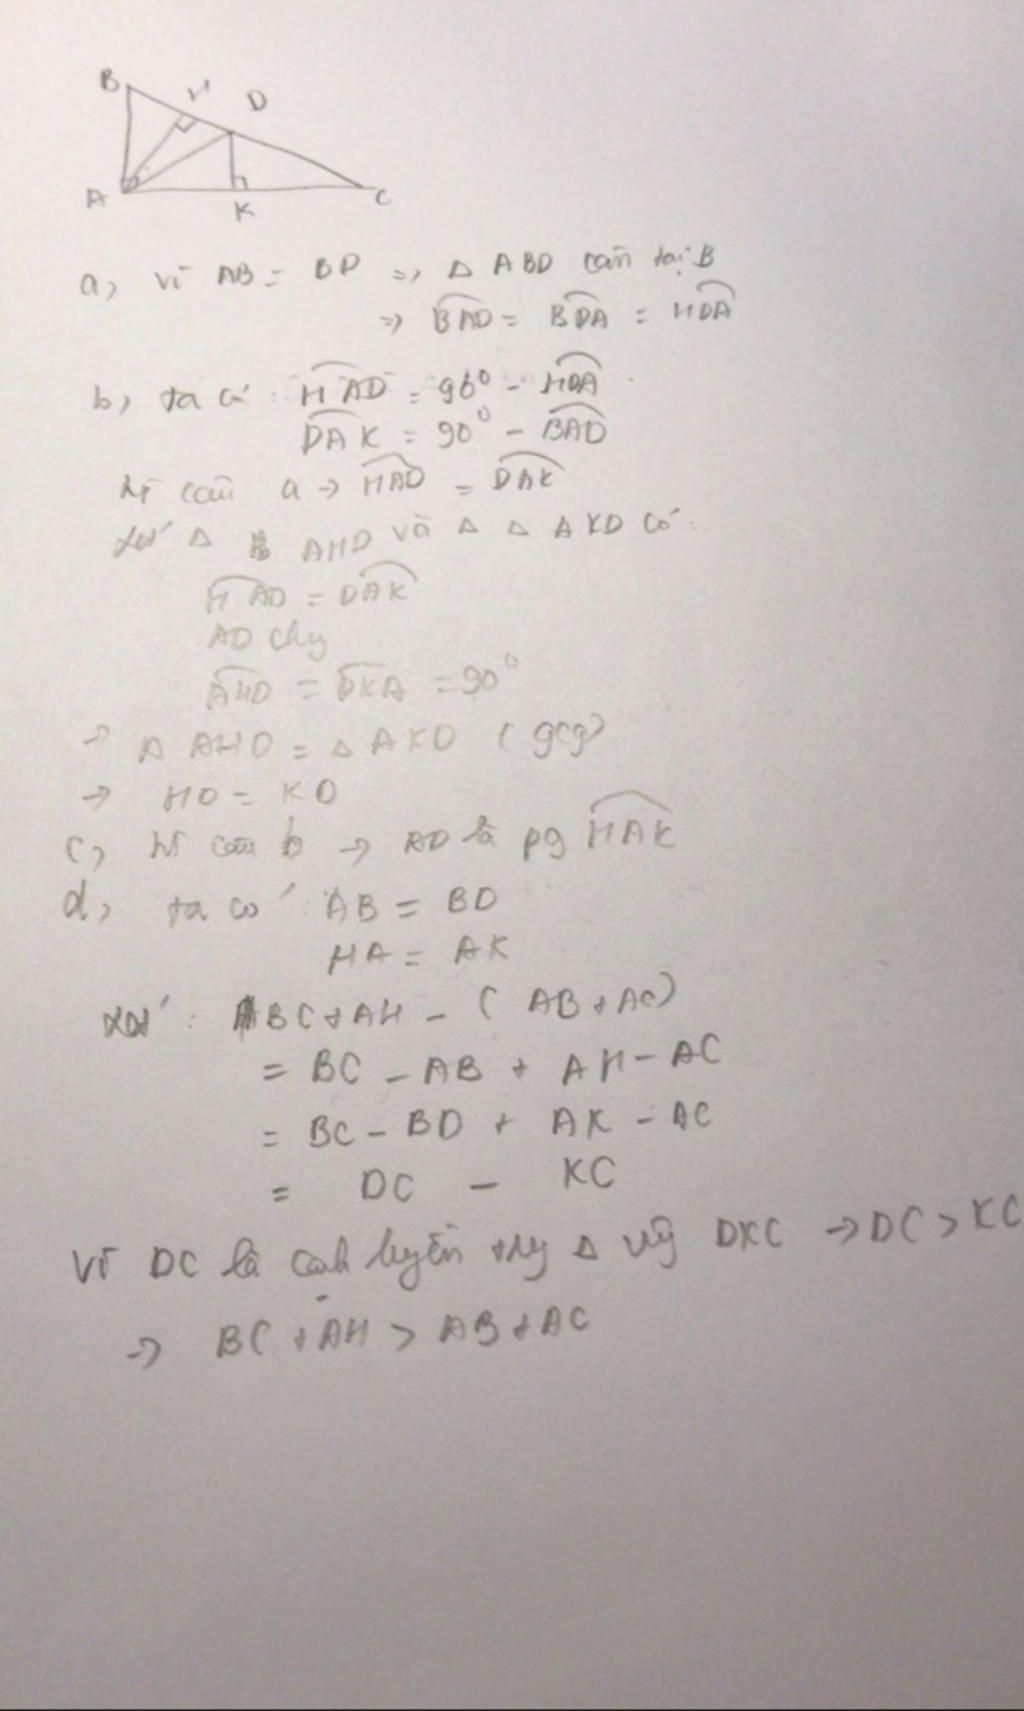 B H D
A K C
a, Vì AB = BD => Δ ABD cân tại B
=> BAD = BDA = HDA
b, ta có : HAD = 90° - HDA
DAK = 90° - BAD
từ câu a -> HAD = DAK
xét Δ AHD và Δ Δ AKD có :
HAD = DAK
AD chg
AHD = DKA = 90°
-> Δ AHD = Δ AKD (gcg)
-> HD = KD
c, từ câu b -> AD là pg HAK
d, ta có AB = BD
HA = AK
xét : BC + AH - ( AB + AC)
= BC - AB + AH - AC
= BC - BD + AK - AC
= DC - KC
Vì DC là cạnh huyền Δ vg DKC -> DC > KC
-> BC + AH > AB + AC